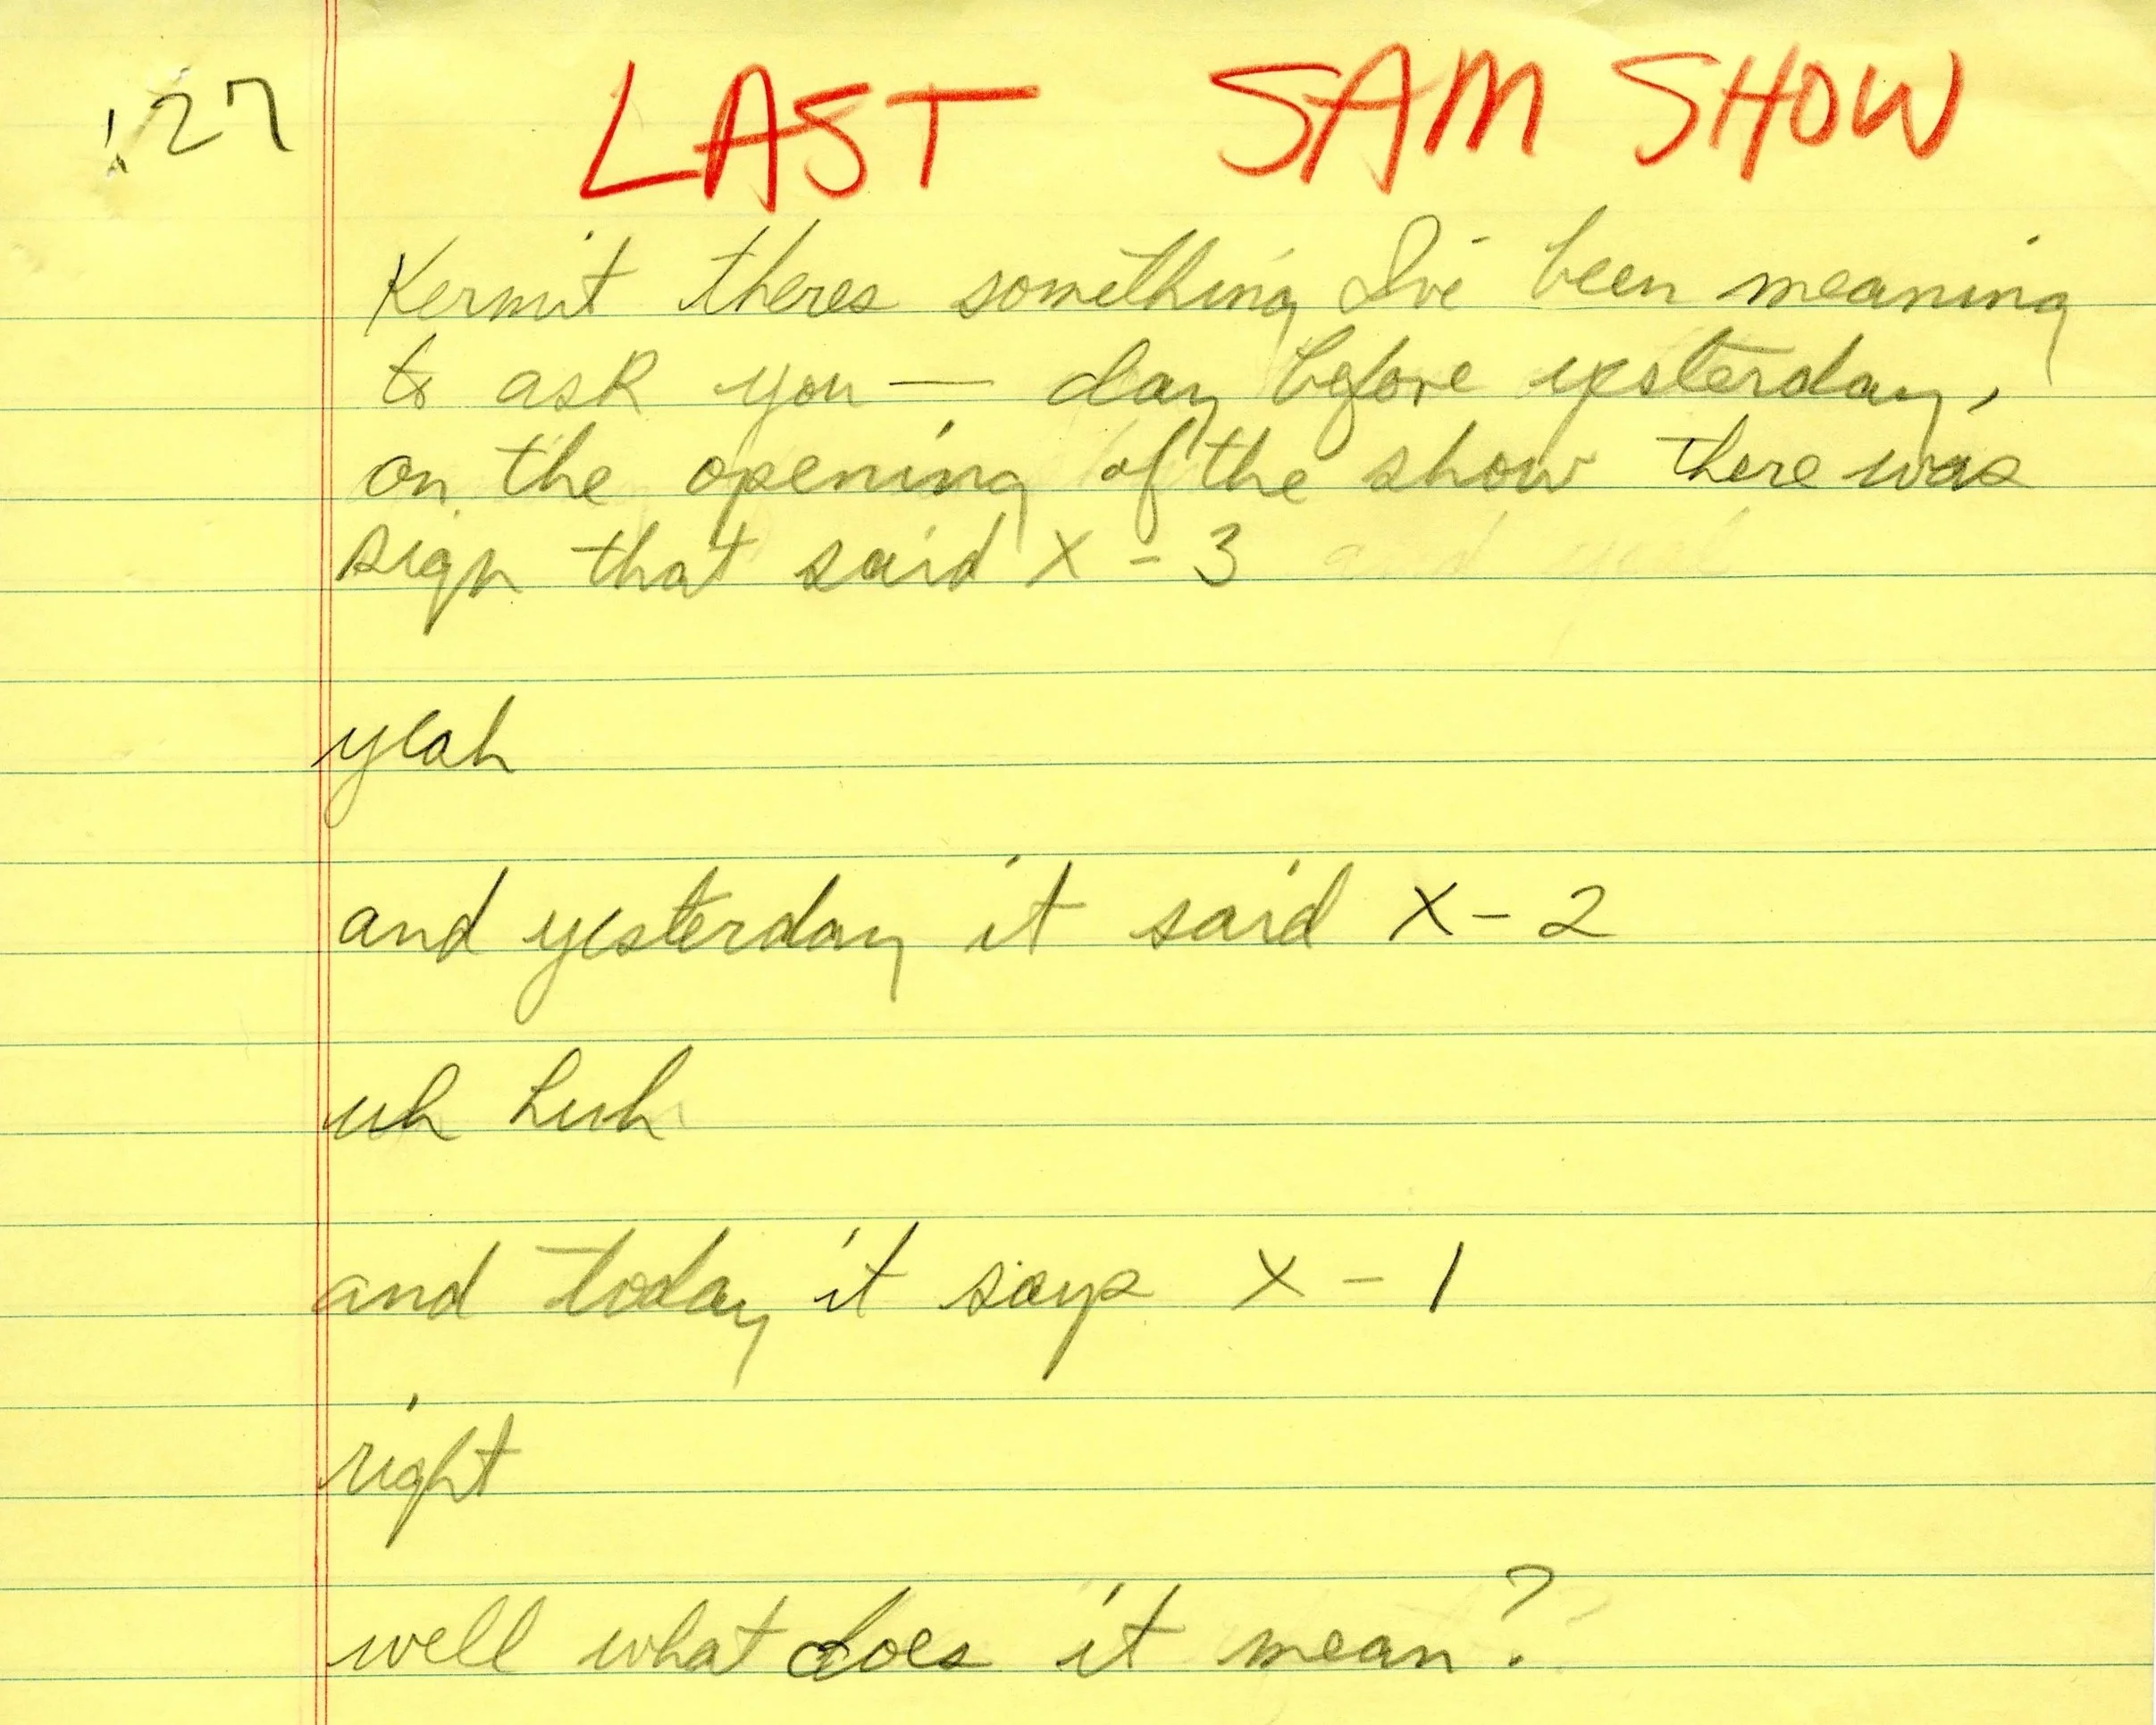 :27
LAST SAM SHOW
Kermit theres something I've been meaning
to ask you — day before yesterday,
on the opening of the show there was
sign that said X - 3
yeah
and yesterday it said X - 2
uh huh
and today it says X - 1
right
well what does it mean?